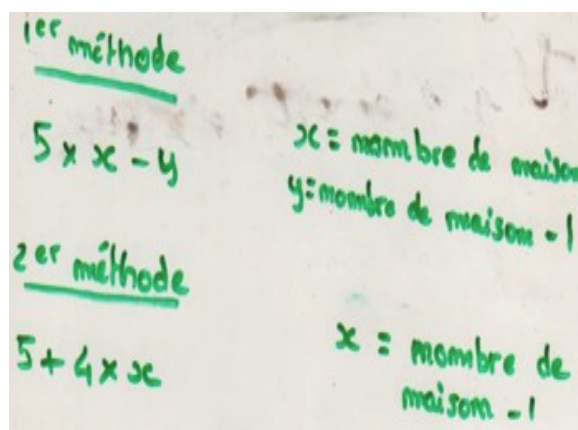 1er méthode
5 x x - y
x = nombre de maison
y = nombre de maison - 1
2er méthode
5 + 4 x x
x = nombre de
maison - 1